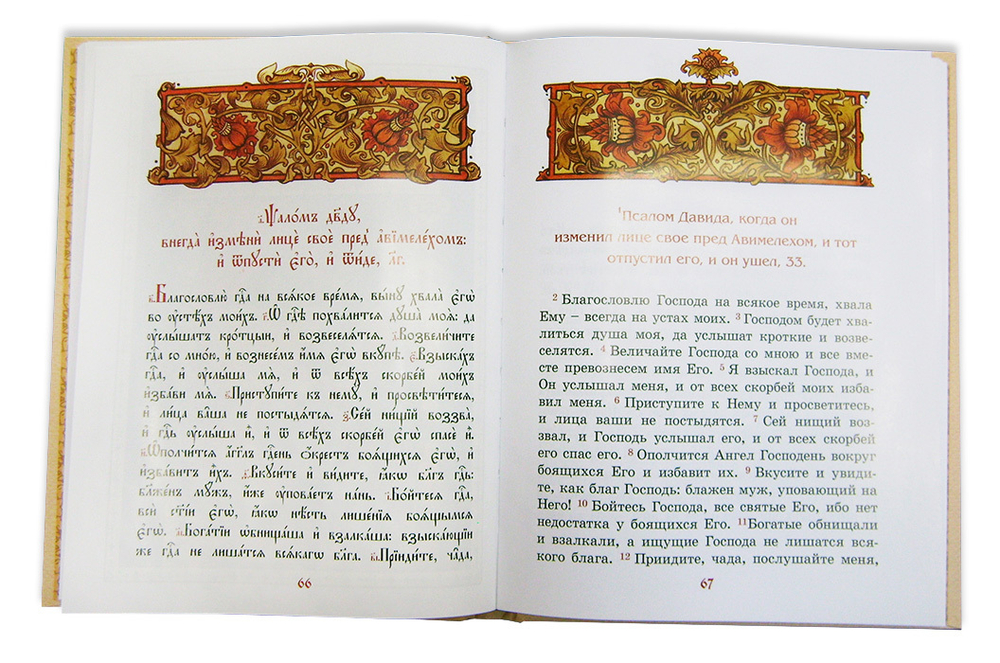 а҃.Ѱало́мъ дв҃ду,
внегда̀ и҆змѣнѝ лицѐ своѐ пред̾ а҆вїмеле́хомъ:
и҆ ѿпустѝ є҆го̀, и҆ ѿи́де, л҃г.
в҃.Благословлю̀ гдⷭ҇а на всѧ́кое вре́мѧ, вы́ну хвала̀ є҆гѡ̀
во ᲂу҆стѣ́хъ мои́хъ. г҃.Ѡ҆ гдⷭ҇ѣ похва́литсѧ дꙋша̀ моѧ̀: да
ᲂу҆слы́шатъ кро́тцыи, и҆ возвеселѧ́тсѧ. д҃.Возвели́чите
гдⷭ҇а со мно́ю, и҆ вознесе́мъ и҆́мѧ є҆гѡ̀ вкꙋ́пѣ. є҃.Взыска́хъ
гдⷭ҇а, и҆ ᲂу҆слы́ша мѧ̀, и҆ ѿ всѣ́хъ скорбе́й мои́хъ
и҆зба́ви мѧ̀. ѕ҃.Пристꙋпи́те къ немꙋ̀, и҆ просвѣти́тесѧ,
и҆ ли́ца ва̑ша не постыдѧ́тсѧ. з҃.Се́й ни́щїй воззва̀,
и҆ гдⷭ҇ь ᲂу҆слы́ша и҆̀, и҆ ѿ всѣ́хъ скорбе́й є҆гѡ̀ спасѐ и҆̀.
и҃.Ѡ҆полчи́тсѧ а҆́гг҃лъ гдⷭ҇ень ѻ҆́крестъ боѧ́щихсѧ є҆гѡ̀, и҆
и҆зба́витъ и҆̀хъ. ѳ҃.Вкꙋси́те и҆ ви́дите, ꙗ҆́кѡ бл҃гъ гдⷭ҇ь:
бл҃же́нъ мꙋ́жъ, и҆́же ᲂу҆пова́етъ на́нь. і҃.Бо́йтесѧ гдⷭ҇а,
всѝ ст҃і́и є҆гѡ̀, ꙗ҆́кѡ нѣ́сть лише́нїѧ боѧ́щымсѧ
є҆гѡ̀. а҃і.Бога́тїи ѡ҆бнища́ша и҆ взалка́ша: взыска́ющїи
же гдⷭ҇а не лиша́тсѧ всѧ́кагѡ бл҃га. в҃і.Прїиди́те, ча̑да,
66
¹Псалом Давида, когда он
изменил лице свое пред Авимелехом, и тот
отпустил его, и он ушел, 33.
² Благословлю Господа на всякое время, хвала
Ему – всегда на устах моих. ³ Господом будет хва-
литься душа моя, да услышат кроткие и возве-
селятся. ⁴ Величайте Господа со мною и все вме-
сте превознесем имя Его. ⁵ Я взыскал Господа, и
Он услышал меня, и от всех скорбей моих изба-
вил меня. ⁶ Приступите к Нему и просветитесь,
и лица ваши не постыдятся. ⁷ Сей нищий воз-
звал, и Господь услышал его, и от всех скорбей
его спас его. ⁸ Ополчится Ангел Господень вокруг
боящихся Его и избавит их. ⁹ Вкусите и увиди-
те, как благ Господь: блажен муж, уповающий на
Него! ¹⁰ Бойтесь Господа, все святые Его, ибо нет
недостатка у боящихся Его. ¹¹Богатые обнищали
и взалкали, а ищущие Господа не лишатся вся-
кого блага. ¹² Приидите, чада, послушайте меня,
67